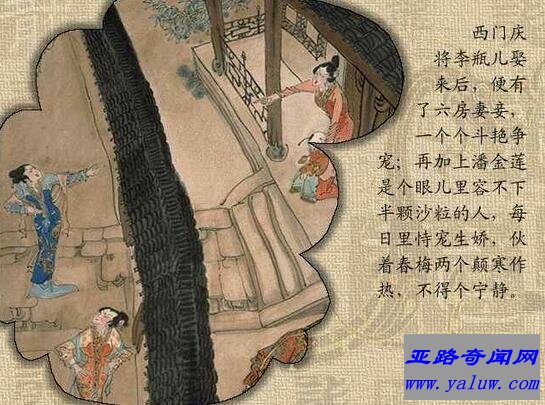 西门庆
将李瓶儿娶
来后，便有
了六房妻妾，
一个个斗艳争
宠；再加上潘金莲
是个眼儿里容不下
半颗沙粒的人，每
日里恃宠生娇，伙
着春梅两个颠寒作
热，不得个宁静。
亚路奇闻网
www.yaluw.com